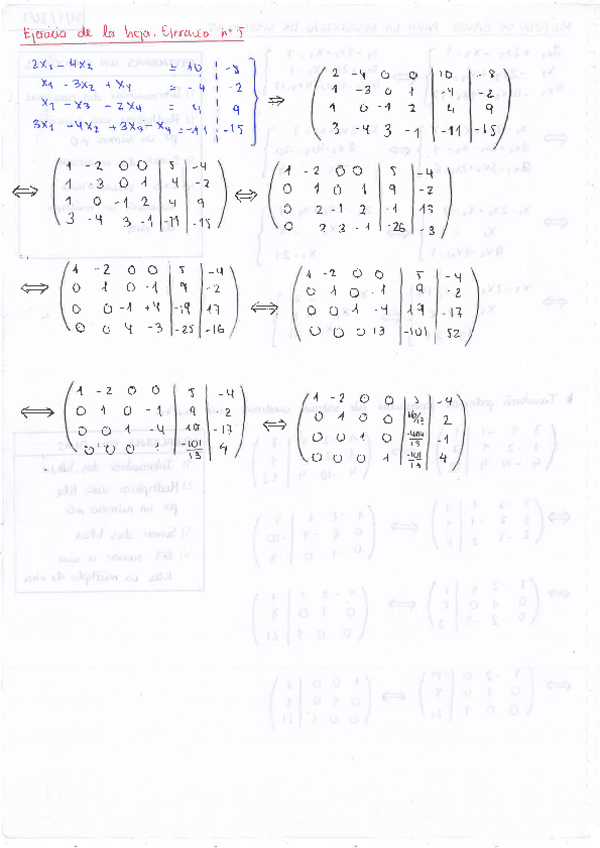 Ejercicio de la hoja. Ejercicio nº 5
2x₁ - 4x₂ = 10 | -8
x₁ - 3x₂ + x₄ = -4 | -2
x₁ - x₃ + 2x₄ = 4 | 9
3x₁ - 4x₂ + 3x₃ - x₄ = -11 | -15
⇒
2 -4 0 0 | 10 | -8
1 -3 0 1 | -4 | -2
1 0 -1 2 | 4 | 9
3 -4 3 -1 | -11 | -15
⟺
1 -2 0 0 | 5 | -4
1 -3 0 1 | 4 | -2
1 0 -1 2 | 4 | 9
3 -4 3 -1 | -11 | -15
⟺
1 -2 0 0 | 5 | -4
0 1 0 1 | 9 | -2
0 2 -1 2 | -1 | 13
0 2 3 -1 | -26 | -3
⟺
1 -2 0 0 | 5 | -4
0 1 0 -1 | 9 | -2
0 0 -1 +4 | -19 | 17
0 0 4 -3 | -25 | -16
⟺
1 -2 0 0 | 5 | -4
0 1 0 -1 | 9 | -2
0 0 1 -4 | 19 | -17
0 0 0 13 | -101 | 52
⟺
1 -2 0 0 | 5 | -4
0 1 0 -1 | 9 | 2
0 0 1 -4 | 19 | -17
0 0 0 1 | -101/13 | 4
⟺
1 -2 0 0 | 5 | -4
0 1 0 0 | 16/13 | 2
0 0 1 0 | | -1
0 0 0 1 | -101/13 | 4